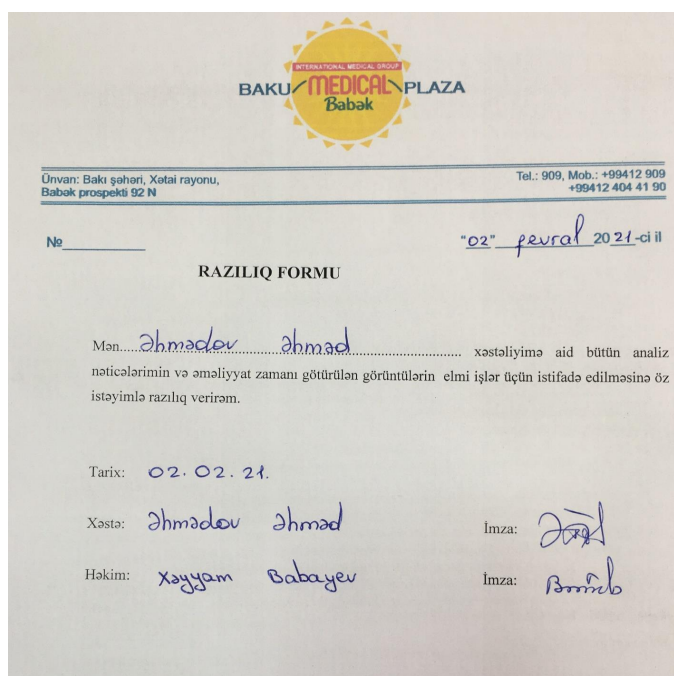 INTERNATIONAL MEDICAL GROUP
BAKU MEDICAL PLAZA
Babək
Ünvan: Bakı şəhəri, Xətai rayonu,
Babək prospekti 92 N
Tel.: 909, Mob.: +99412 909
+99412 404 41 90
№
"02" fevral 2021-ci il
RAZILIQ FORMU
Mən Əhmədov Əhməd xəstəliyimə aid bütün analiz
nəticələrimin və əməliyyat zamanı götürülən görüntülərin elmi işlər üçün istifadə edilməsinə öz
istəyimlə razılıq verirəm.
Tarix: 02.02.21.
Xəstə: Əhmədov Əhməd İmza:
Həkim: Xəyyam Babayev İmza: